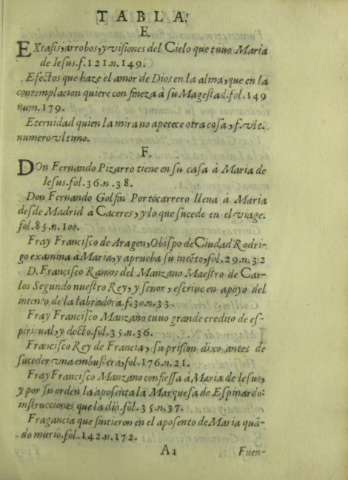 TABLA.
E.
EXtasis, arrobos, y visiones del Cielo que tuuo Maria
de Iesus. f. 121. n. 149.
Efectos que haze el amor de Dios en la alma, que en la
contemplacion quiere con fineza à su Magestad. fol. 149
num. 179.
Eternidad quien la mira no apetece otra cosa, f. vlt.
numero vltimo.
F.
DOn Fernando Pizarro tiene en su casa à Maria de
Iesus. fol. 36. n. 38.
Don Fernando Golfin Portocarrero lleua à Maria
desde Madrid à Caceres, y lo que sucede en el viage.
fol. 85. n. 100.
Fray Francisco de Aragon, Obispo de Ciudad Rodri-
go examina à Maria, y aprueba su intẽto, fol. 29. n. 32
D. Francisco Ramos del Manzano Maestro de Car-
los Segundo nuestro Rey, y señor, escriue en apoyo del
intento de la labradora. f. 30. n. 33.
Fray Francisco Manzano tuuo grande credito de es-
piritual, y docto. fol. 35. n. 36.
Francisco Rey de Francia, su prision dixo antes de
suceder vna embustera, fol. 176. n. 21.
Fray Francisco Manzano confiessa à Maria de Iesus,
y por su orden la aposenta la Marquesa de Espinardo:
instrucciones que la diò. fol. 35. n. 37.
Fragancia que sintieron en el aposento de Maria quã-
do murio. fol. 142. n. 172.
A2 Fuen-